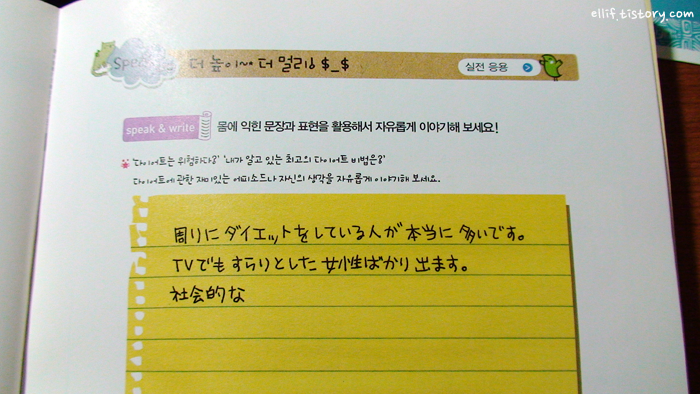 ellif.tistory.com
Speak
더 높이~ 더 멀리! $_$
실전 응용
speak & write
몸에 익힌 문장과 표현을 활용해서 자유롭게 이야기해 보세요!
'다이어트는 위험하다?' '내가 알고 있는 최고의 다이어트 비법은?'
다이어트에 관한 재미있는 에피소드나 자신의 생각을 자유롭게 이야기해 보세요.
周りにダイエットをしている人が本当に多いです。
TVでもすらりとした女性ばかり出ます。
社会的な